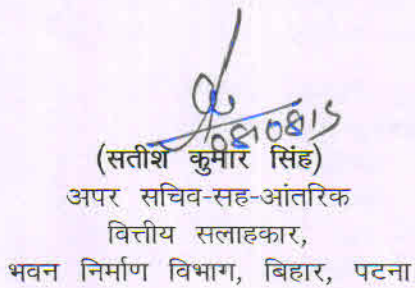 08/08/15
(सतीश कुमार सिंह)
अपर सचिव-सह-आंतरिक
वित्तीय सलाहकार,
भवन निर्माण विभाग, बिहार, पटना